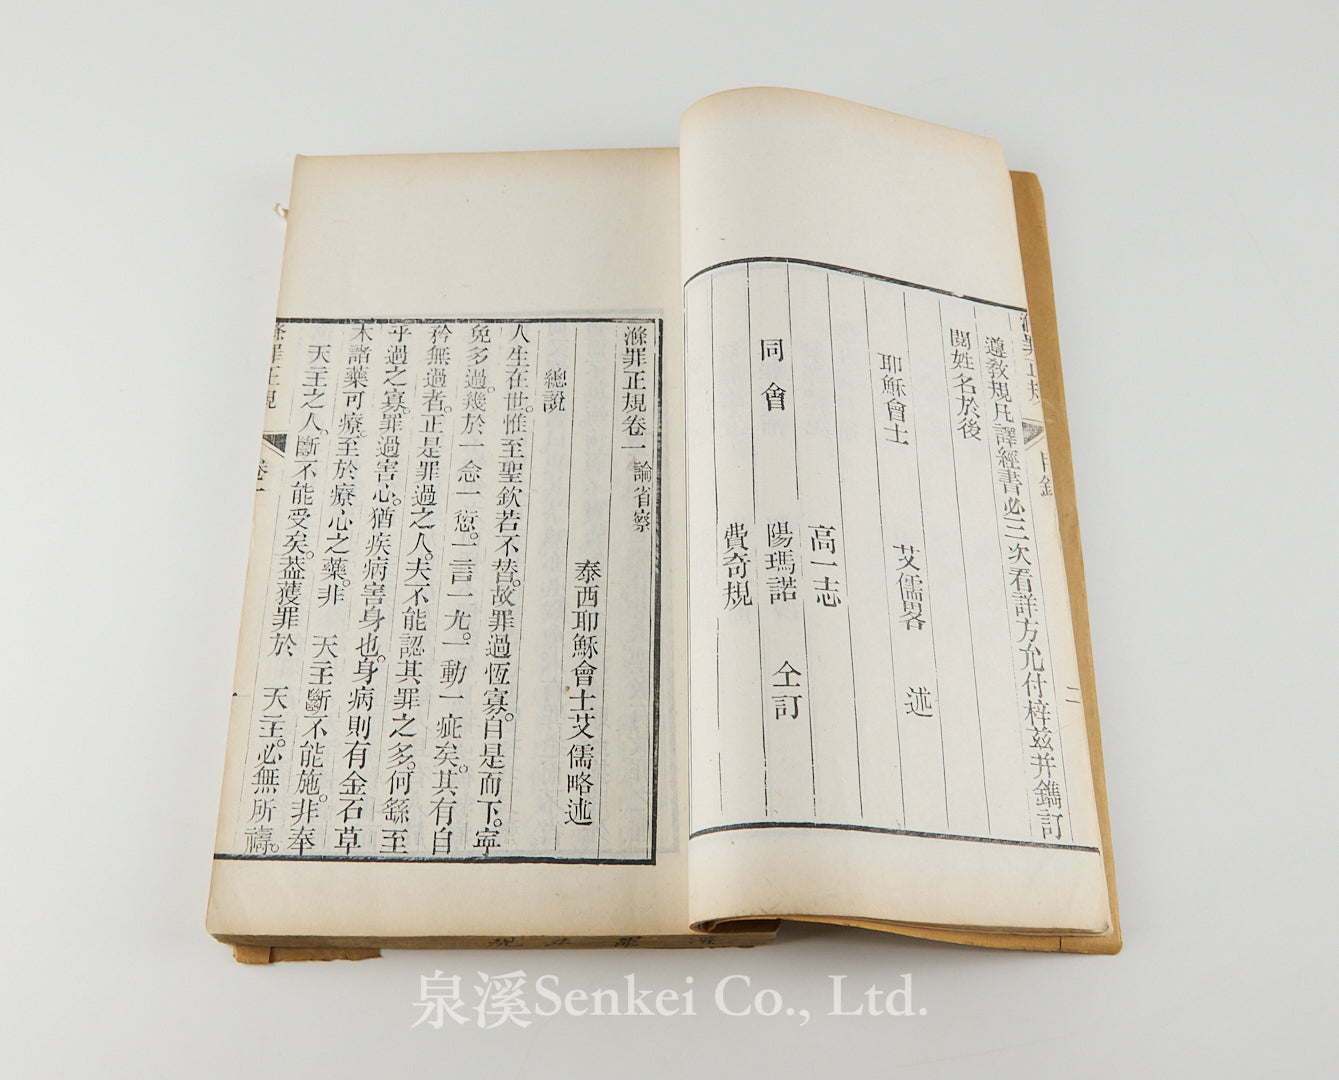 滌罪正規 目錄 二
遵教規凡譯經書必三次看詳方允付梓茲并鐫訂
閱姓名於後
耶穌會士 艾儒畧 述
高一志
同會 陽瑪諾 仝訂
費奇規
滌罪正規卷一 論省察
泰西耶穌會士艾儒略述
總說
人生在世。惟至聖欽若不替。故罪過恆寡。自是而下。寧
免多過。幾於一念一愆。一言一尤。一動一疵矣。其有自
矜無過者。正是罪過之人。夫不能認其罪之多。何繇至
乎過之寡。罪過害心。猶疾病害身也。身病則有金石草
木諸藥可療。至於療心之藥。非 天主斷不能施。非奉
天主之人。斷不能受矣。蓋獲罪於 天主。必無所禱。
滌罪正規 卷一
滌罪正規
泉溪Senkei Co., Ltd.